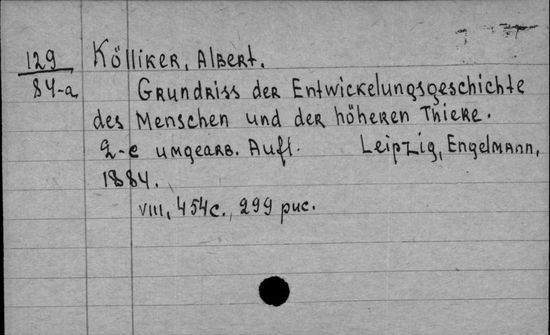 129 Kölliker, Albert.
84-a Grundriss der Entwickelungsgeschichte
des Menschen und der höheren Thiere.
2-e umgearb. Aufl. Leipzig, Engelmann,
1884.
VIII, 454 с., 299 рис.